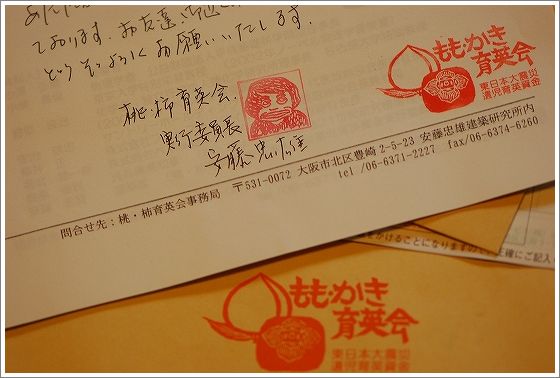 ております。お友達、
どうぞよろしくお願いいたします。
桃・柿育英会
実行委員長
安藤忠雄
もも・かき
育英会
東日本大震災
遺児育英資金
問合せ先：桃・柿育英会事務局 〒531-0072 大阪市北区豊崎 2-5-23 安藤忠雄建築研究所内
tel /06-6371-2227 fax/06-6374-6260
をかけることになりますので、正確にご記入
もも・かき
育英会
東日本大震災
遺児育英資金